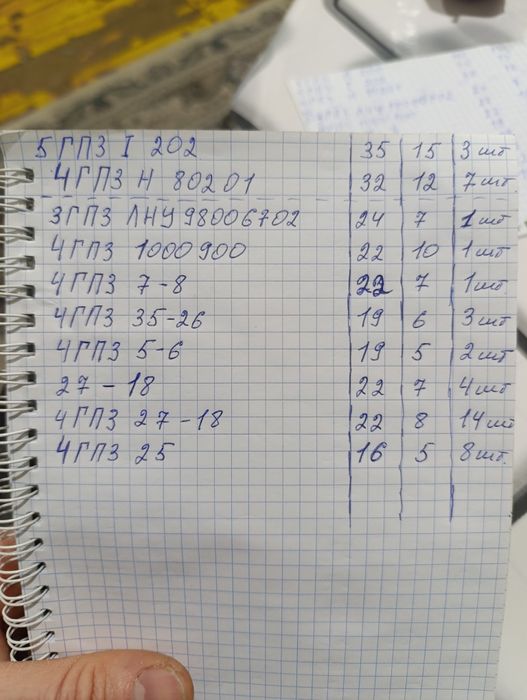 5 ГПЗ I 202 35 15 3 шт
4 ГПЗ Н 80201 32 12 7 шт.
3ГПЗ ЛНУ 98006702 24 7 1 шт
4 ГПЗ 1000900 22 10 1 шт
4 ГПЗ 7-8 22 7 1 шт
4 ГПЗ 35-26 19 6 3 шт
4 ГПЗ 5-6 19 5 2 шт
27-18 22 7 4 шт
4 ГПЗ 27-18 22 8 14 шт
4 ГПЗ 25 16 5 8 шт.